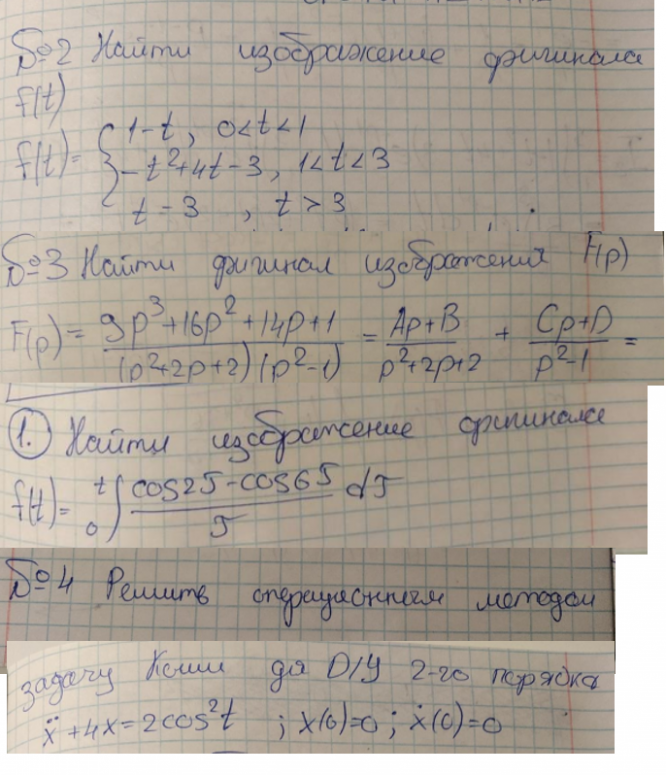 №2 Найти изображение оригинала
f(t)
f(t)= { 1-t, 0<t<1
-t²+4t-3, 1<t<3
t-3, t>3
№3 Найти оригинал изображения F(p)
F(p) = (9p³+16p²+14p+1)/((p²+2p+2)(p²-1)) = (Ap+B)/(p²+2p+2) + (Cp+D)/(p²-1) =
1. Найти изображение оригинала
f(t)= ₀∫ᵗ (cos2τ-cos6τ)/τ dτ
№4 Решить операционным методом
задачу Коши до D/У 2-го порядка
ẍ+4x=2cos²t ; x(0)=0 ; ẋ(0)=0